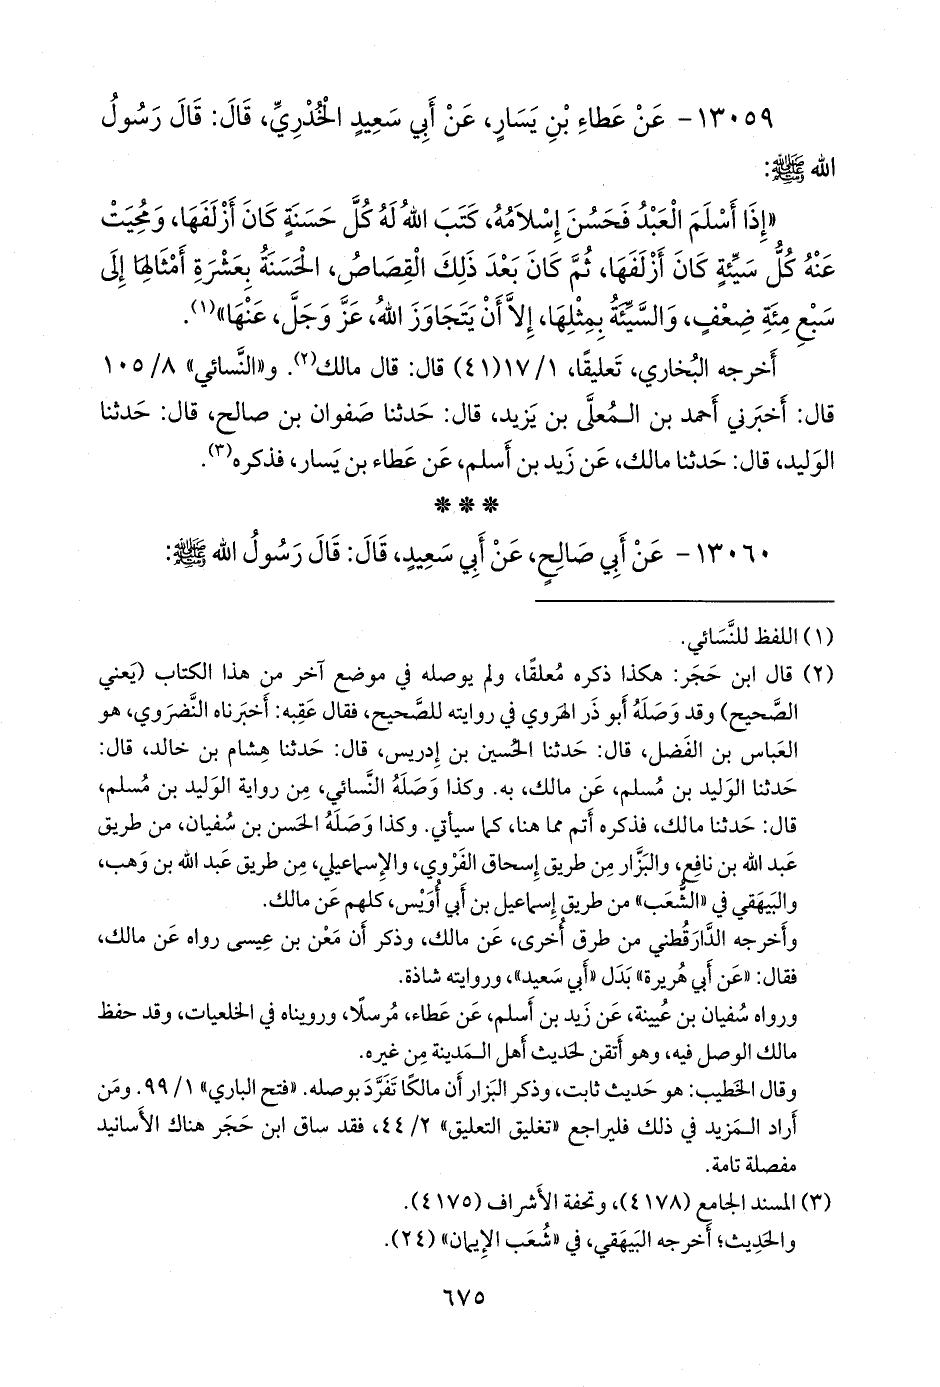 ١٣٠٥٩- عَنْ عَطَاءِ بْنِ يَسَارٍ، عَنْ أَبِي سَعِيدٍ الْخُدْرِيِّ، قَالَ: قَالَ رَسُولُ
الله ﷺ:
«إِذَا أَسْلَمَ الْعَبْدُ فَحَسُنَ إِسْلَامُهُ، كَتَبَ اللهُ لَهُ كُلَّ حَسَنَةٍ كَانَ أَزْلَفَهَا، وَمُحِيَتْ
عَنْهُ كُلُّ سَيِّئَةٍ كَانَ أَزْلَفَهَا، ثُمَّ كَانَ بَعْدَ ذَلِكَ الْقِصَاصُ، الْحَسَنَةُ بِعَشْرَةِ أَمْثَالِهَا إِلَى
سَبْعِ مِئَةِ ضِعْفٍ، وَالسَّيِّئَةُ بِمِثْلِهَا، إِلاَّ أَنْ يَتَجَاوَزَ اللهُ، عَزَّ وَجَلَّ، عَنْهَا»(١).
أَخرجه البُخاري، تَعليقًا، ١/ ١٧(٤١) قال: قال مالك(٢). و«النَّسائي» ٨/ ١٠٥
قال: أَخبَرني أَحمد بن المُعلَّى بن يَزيد، قال: حَدثنا صَفوان بن صالح، قال: حَدثنا
الوَليد، قال: حَدثنا مالك، عَن زَيد بن أَسلم، عَن عَطاء بن يَسار، فذكره(٣).
* * *
١٣٠٦٠- عَنْ أَبِي صَالِحٍ، عَنْ أَبِي سَعِيدٍ، قَالَ: قَالَ رَسُولُ الله ﷺ:
(١) اللفظ للنَّسَائي.
(٢) قال ابن حَجَر: هكذا ذكره مُعلقًا، ولم يوصله في موضع آخر من هذا الكتاب (يَعني
الصَّحيح) وقد وَصَلَهُ أَبو ذَر الهَروي في روايته للصَّحيح، فقال عَقِبه: أَخبَرناه النَّضرَوي، هو
العَباس بن الفَضل، قال: حَدثنا الحُسين بن إدريس، قال: حَدثنا هِشام بن خالد، قال:
حَدثنا الوَليد بن مُسلم، عَن مالك، به. وكذا وَصَلَهُ النَّسائي، مِن رواية الوَليد بن مُسلم،
قال: حَدثنا مالك، فذكره أَتم مما هنا، كما سيأتي. وكذا وَصَلَهُ الحَسن بن سُفيان، من طريق
عَبد الله بن نافع، والبَزَّار مِن طريق إِسحاق الفَرْوي، والإِسماعيلي، مِن طريق عَبد الله بن وَهب،
والبَيهَقي في «الشُّعَب» من طريق إِسماعيل بن أَبي أُوَيْس، كلهم عَن مالك.
وأَخرجه الدَّارَقُطني من طرق أُخرى، عَن مالك، وذكر أَن مَعْن بن عِيسى رواه عَن مالك،
فقال: «عَن أَبي هُريرة» بَدَل «أَبي سَعيد»، وروايته شاذة.
ورواه سُفيان بن عُيينة، عَن زَيد بن أَسلم، عَن عَطاء، مُرسلًا، ورويناه في الخلعيات، وقد حفظ
مالك الوصل فيه، وهو أَتقن لحَديث أَهل المَدينة مِن غيره.
وقال الخَطيب: هو حَديث ثابت، وذكر البَزار أَن مالكًا تَفَرَّدَ بوصله. «فتح الباري» ١/ ٩٩. ومَن
أَراد المَزيد في ذلك فليراجع «تغليق التعليق» ٢/ ٤٤، فقد ساق ابن حَجَر هناك الأَسانيد
مفصلة تامة.
(٣) المسند الجامع (٤١٧٨)، وتحفة الأَشراف (٤١٧٥).
والحَدِيث؛ أَخرجه البَيهَقي، في «شُعَب الإِيمان» (٢٤).
٦٧٥